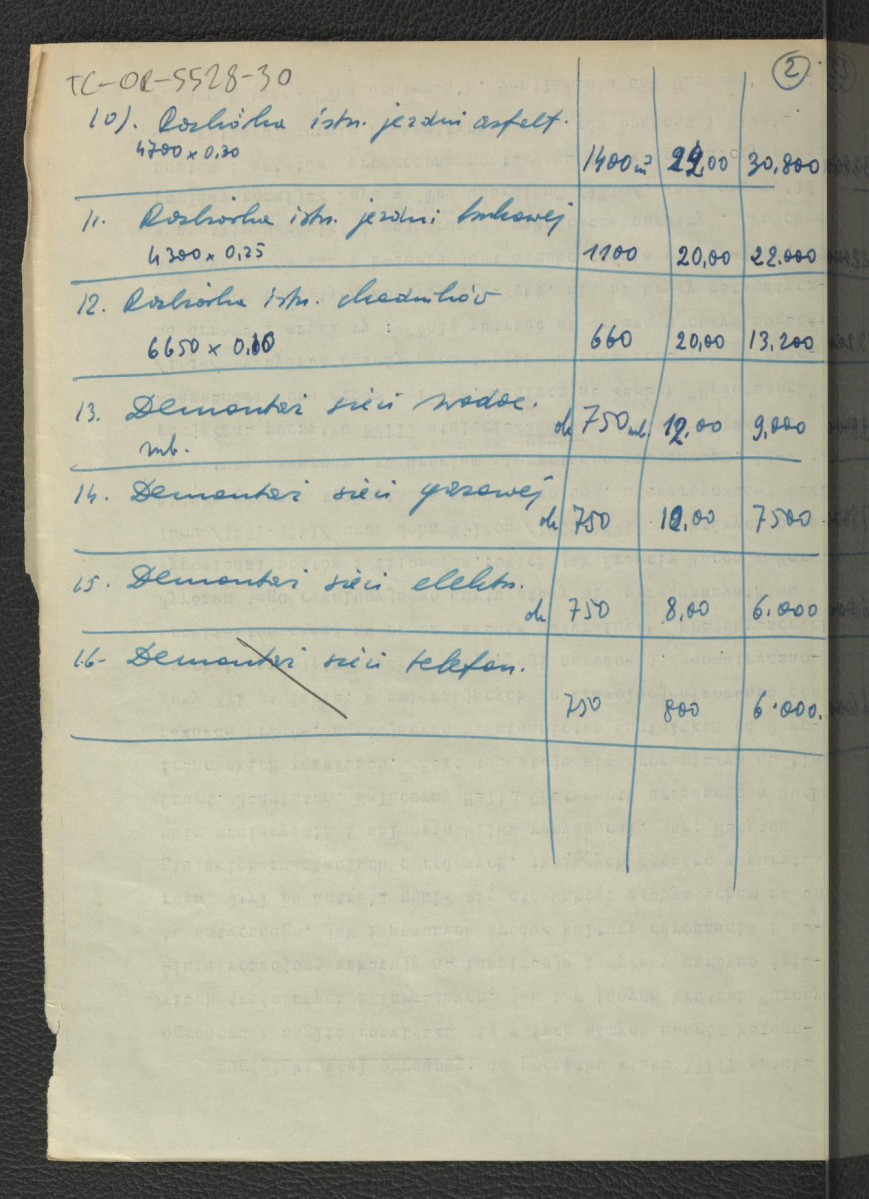 TC-OR-5528-30
2
10). Rozbiórka istn. jezdni asfalt.
4700 x 0,30 1400 m³ 22,00 30,800
11. Rozbiórka istn. jezdni brukowej
4300 x 0,25 1100 20,00 22.000
12. Rozbiórka istn. chodników
6650 x 0,10 660 20,00 13,200
13. Demontaż sieci wodoc.
mb. ok 750 mb. 12,00 9,000
14. Demontaż sieci gazowej
ok 750 10,00 7500
15. Demontaż sieci elektr.
ok 750 8,00 6.000
16- Demontaż sieci telefon.
750 800 6.000.